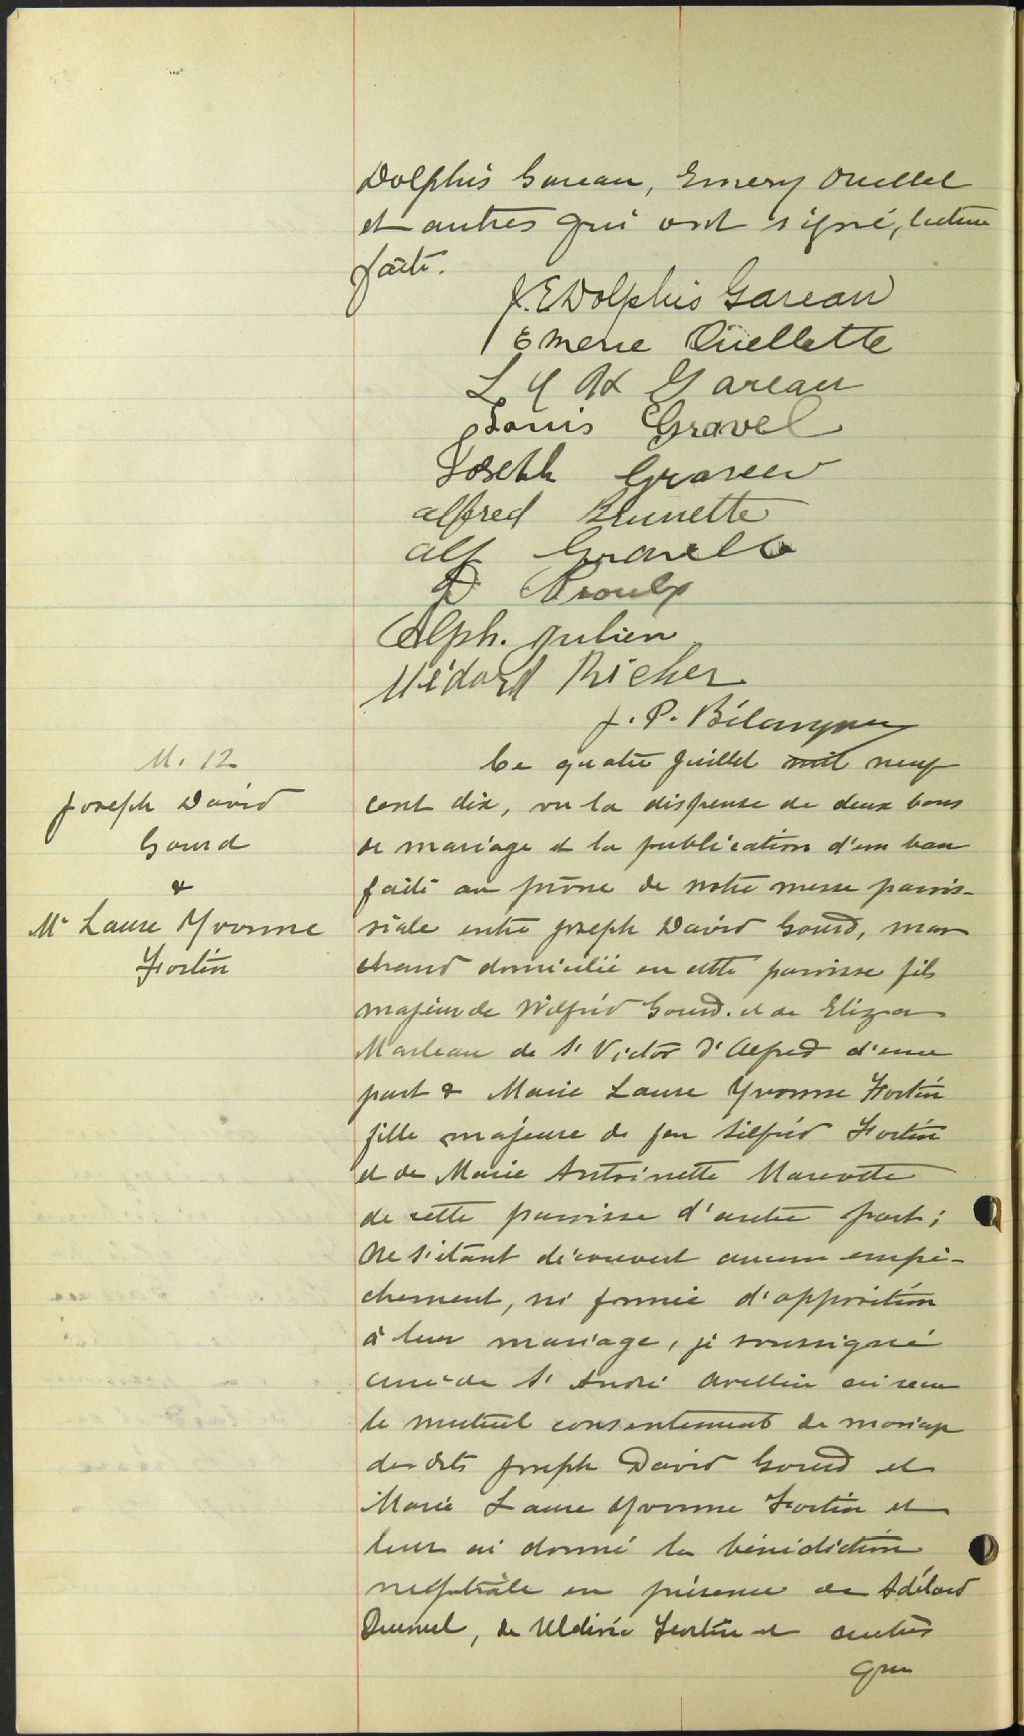 Dolphis Gareau, Emery Ouellet
et autres qui ont signé, lecture
faite.
J. E Dolphis Gareau
Emerie Ouellette
Gareau
Louis Gravel
Joseph
alfred Brunette
alf Gravelle
D Proulx
Alph. Julien
Médard Richer
J. P. Bélanger
M. 12
Joseph David
Gourd
&
Me Laure Yvonne
Fortin
Ce quatre Juillet mil neuf
cent dix, vu la dispense de deux bans
de mariage et la publication d'un ban
faite au prône de notre messe parois-
siale entre Joseph David Gourd, mar
chand domicilié en cette paroisse fils
majeur de Wilfrid Gourd. et de Eliza
Marleau de St Victor d'Alfred d'une
part & Marie Laure Yvonne Fortin
fille majeure de feu Silfrid Fortin
et de Marie Antoinette Marcotte
de cette paroisse d'autre part;
Ne s'étant découvert aucun empê-
chement, ni formée d'opposition
à leur mariage, je soussigné
curé de St André Avellin ai reçu
le mutuel consentement de mariage
des dits Joseph David Gourd et
Marie Laure Yvonne Fortin et
leur ai donné la bénédiction
nuptiale en présence de Adélard
de Uldéric Fortin et autres
qui